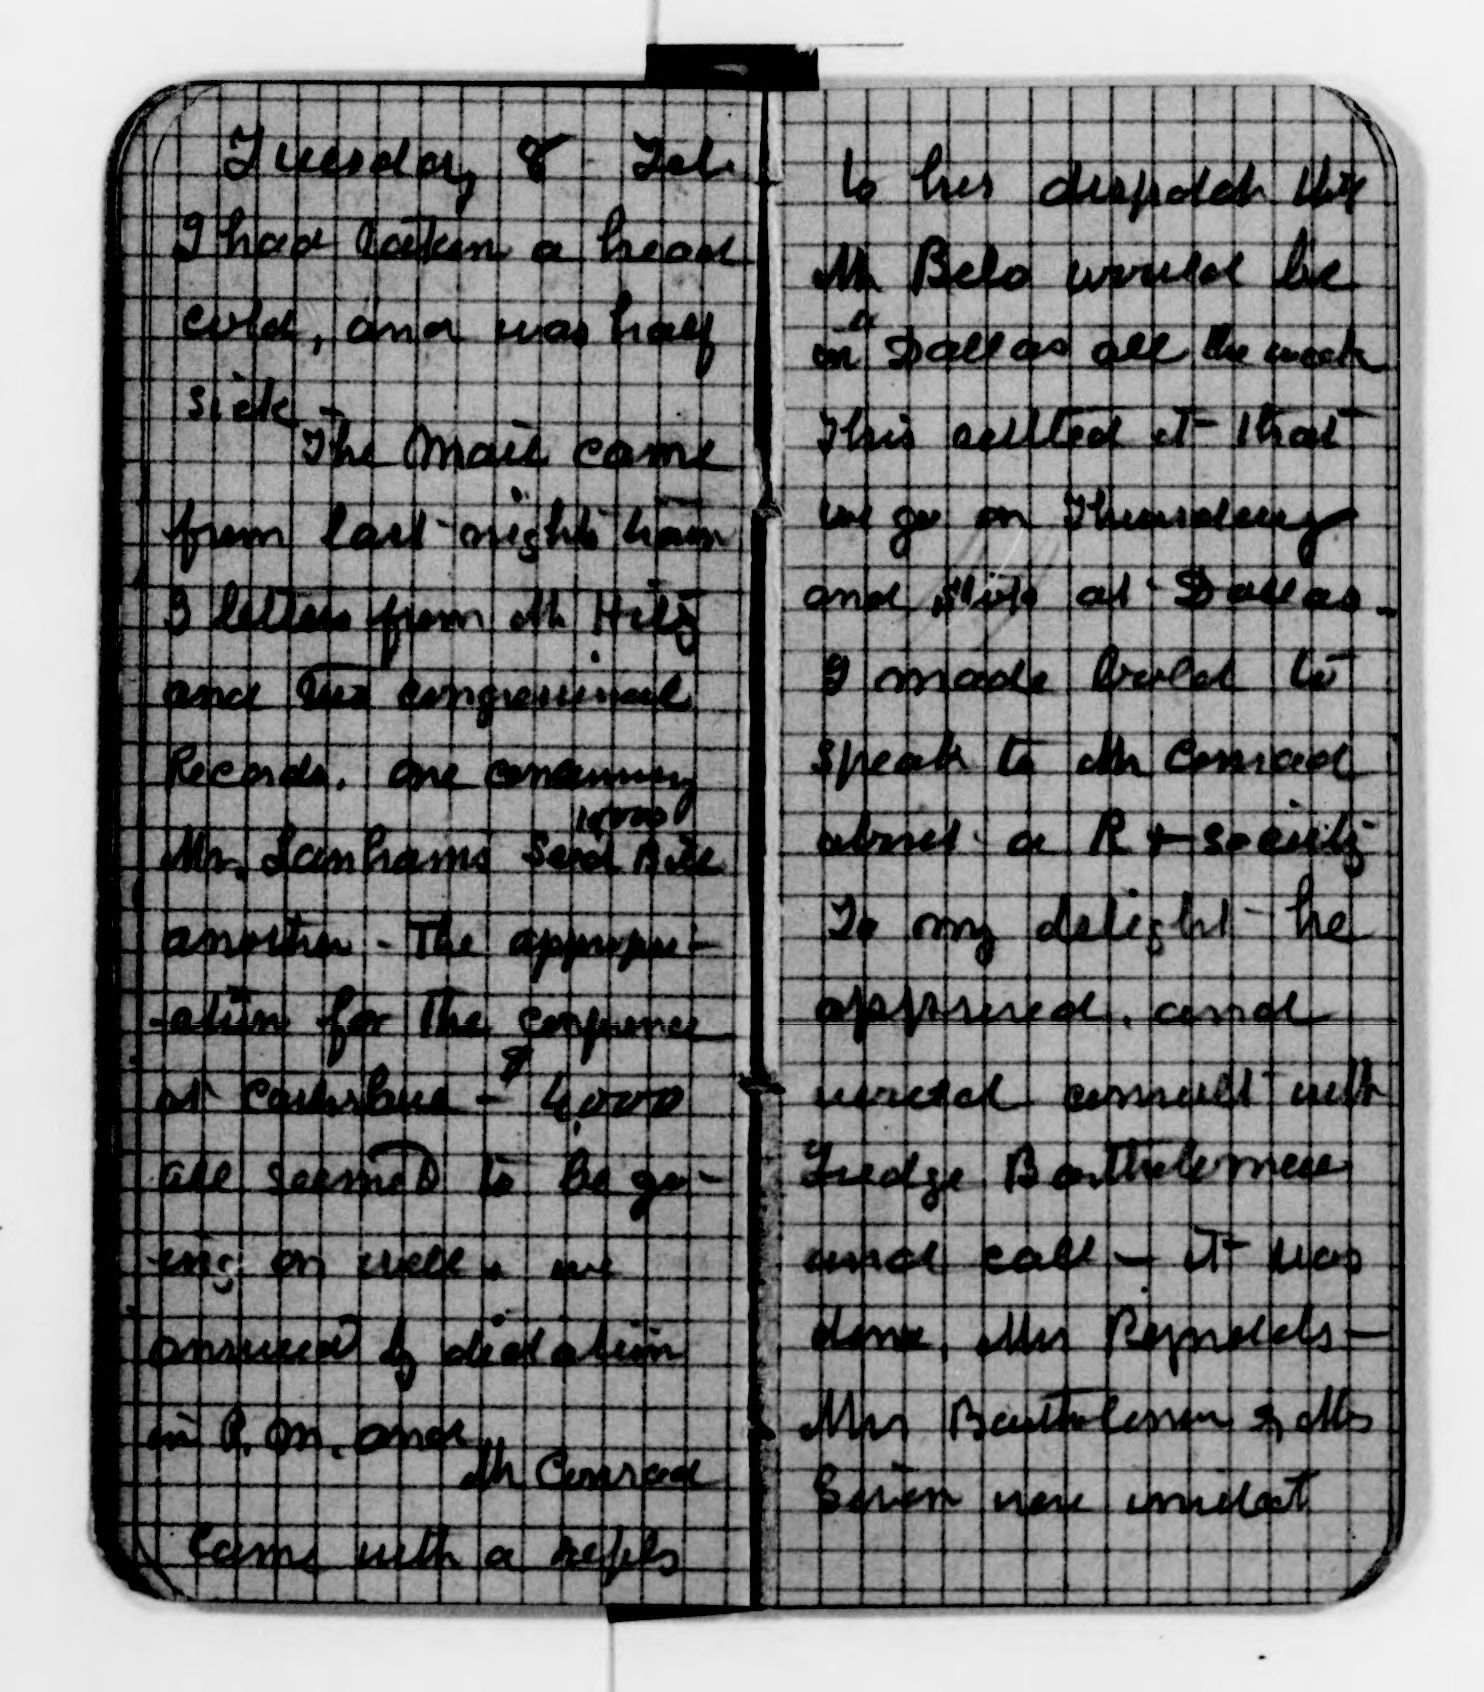 Tuesday 8 Feb.
I had taken a head
cold, and was half
sick -
The Mail came
from last nights train
3 letters from Mr Hitz
and two congressional
Records. One concerning
10,000
Mr. Lanhams Seed Bill
another - The appropri-
-ation for the conference
at Carlsruhe - $ 4,000
all seemed to be go-
ing on well. we
answered by dictation
in P.M. and
Mr Conrad
came with a reply
to his dispatch that
Mr Belo would be
in Dallas all the week
This settled it that
we go on Thursday
and stop at Dallas -
I made bold to
speak to Mr Conrad
about a R + Society
To my delight he
approved, and
would consult with
Judge Bartholemew
and call - it was
done, Mrs Reynolds -
Mrs Bartholemew & Mrs
were